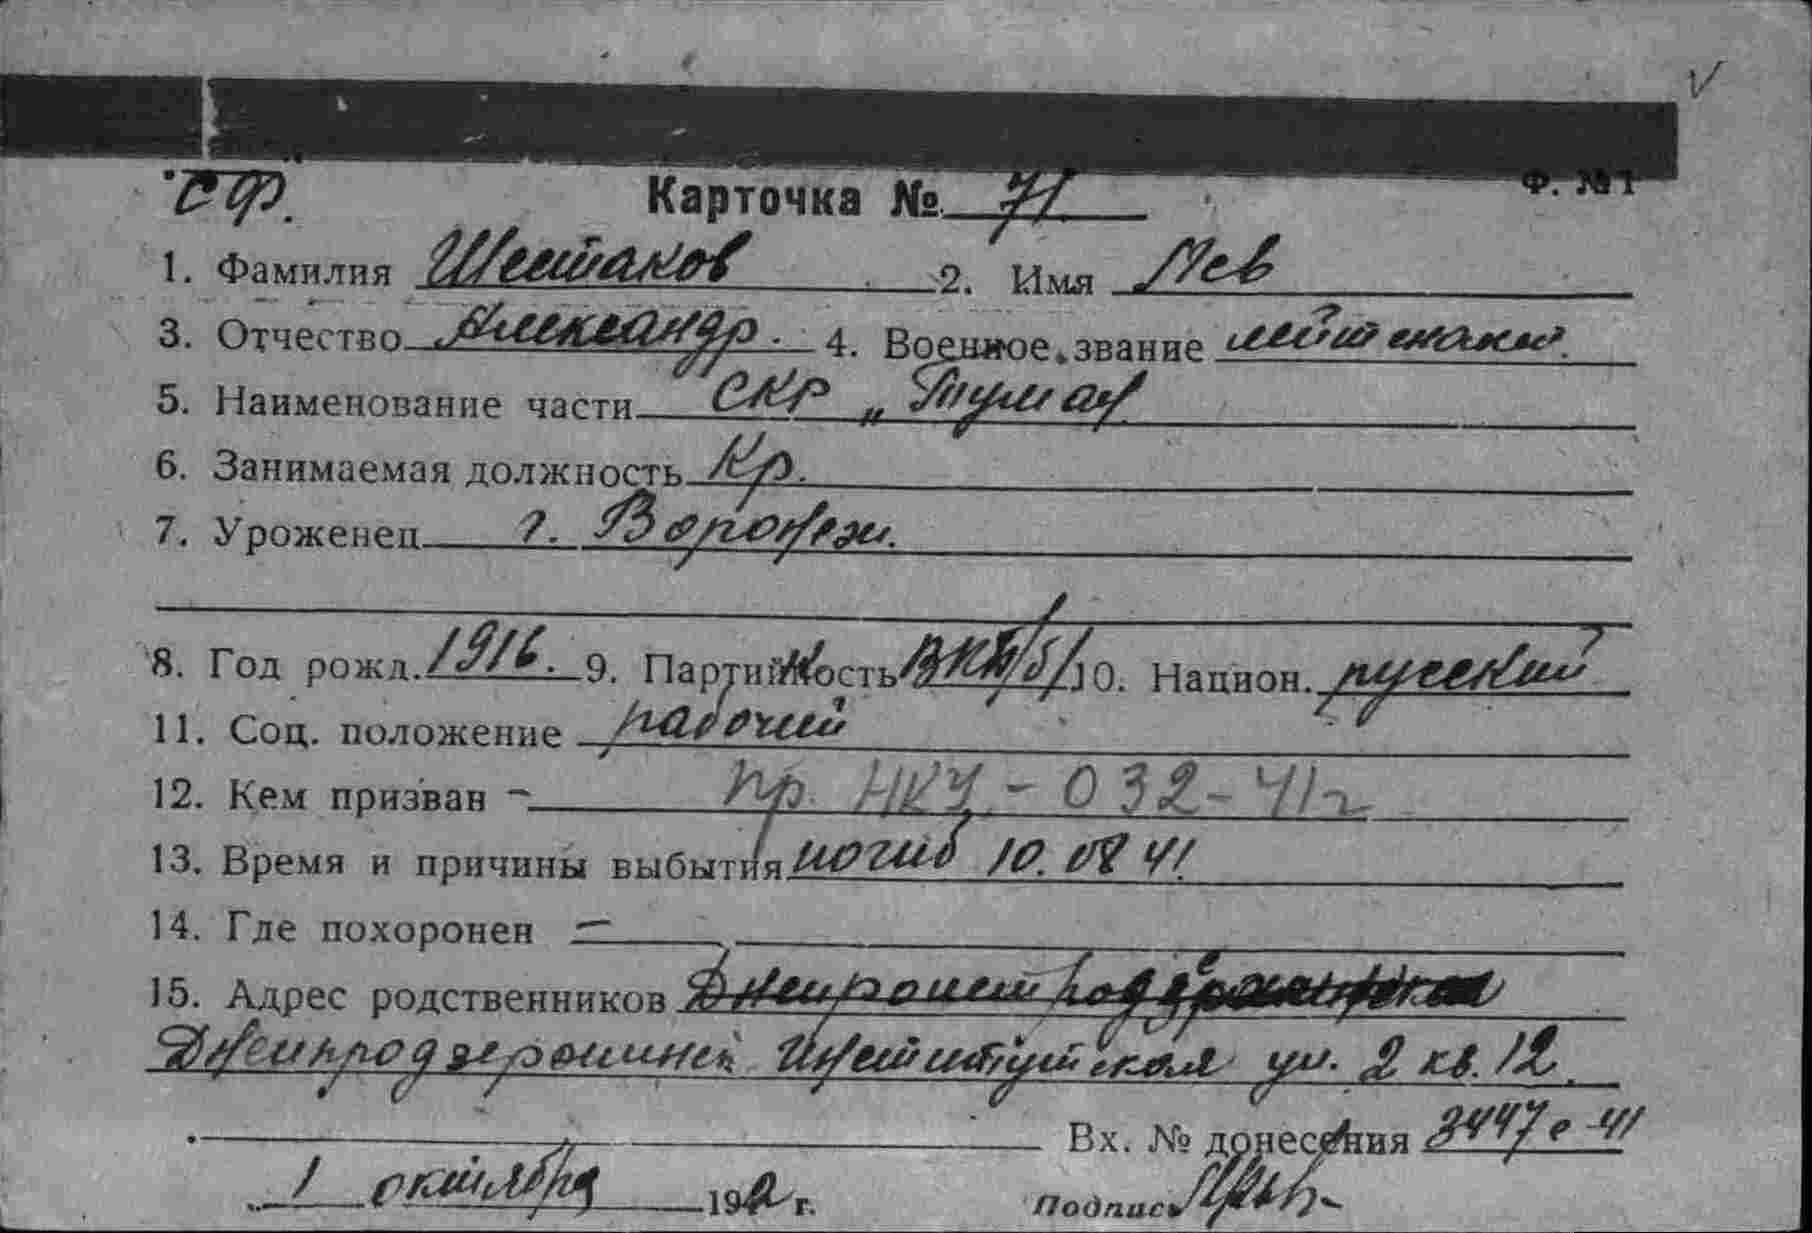 "СФ."
Ф. №1
Карточка № 71
1. Фамилия Шестаков 2. Имя Лев
3. Отчество Александр. 4. Военное звание лейтенант.
5. Наименование части СКР „Туман
6. Занимаемая должность Кр.
7. Уроженец г. Воронеж.
8. Год рожд. 1916. 9. Партийность ВКП/б/ 10. Национ. русский
11. Соц. положение рабочий
12. Кем призван – пр. НКУ - 032 - 41г
13. Время и причины выбытия погиб 10.08 41.
14. Где похоронен —
15. Адрес родственников
Днепродзержинск Институтская ул. 2 кв. 12.
Вх. № донесения 3447с-41
1 октября 192 г. Подпись